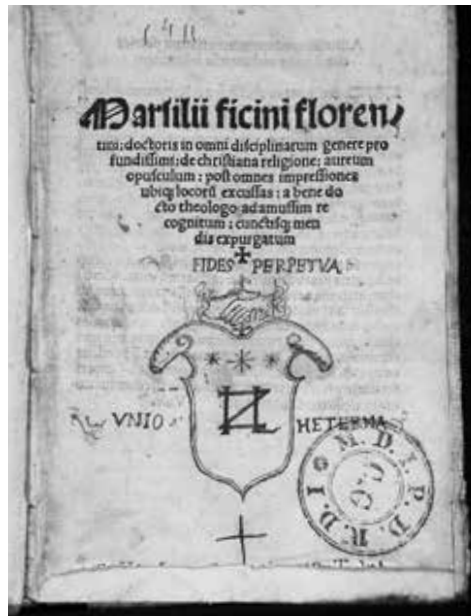 Marsilii ficini floren
tini: doctoris in omni disciplinarum genere pro
fundissimi: de christiana religione: aureum
opusculum: post omnes impressiones
ubiq; locorũ excussas: a bene do
cto theologo adamussim re
cognitum: cunctisq; men
dis expurgatum
FIDES PERPETVA
VNIO HETERNA
M. D. I. P. D. R. D. I